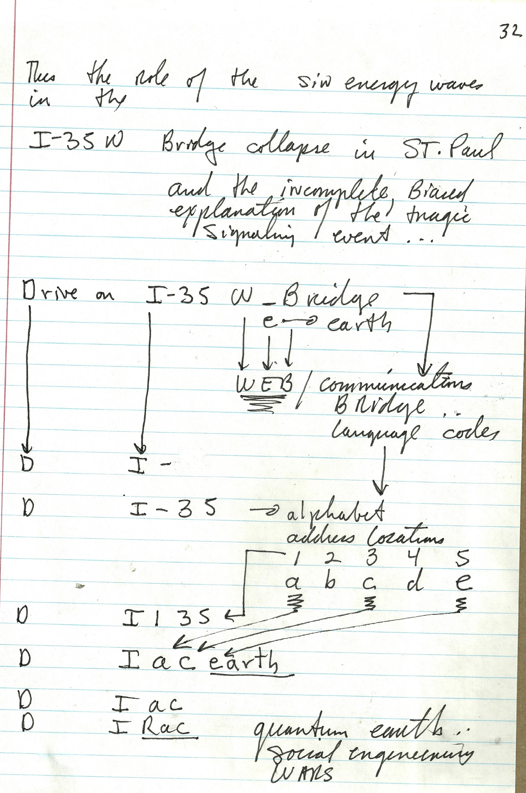 32
Thus the role of the sin energy waves
in the
I-35 W Bridge collapse in ST. Paul
and the incomplete, Biased
explanation of the tragic
signaling event ...
Drive on I-35 W - Bridge
e → earth
WEB / communications
Bridge ..
language codes
D I -
D I-35 → alphabet
address locations
1 2 3 4 5
a b c d e
D I 1 3 5
D I a c earth
D I ac
D I Rac quantum earth ..
social engineering
WARS